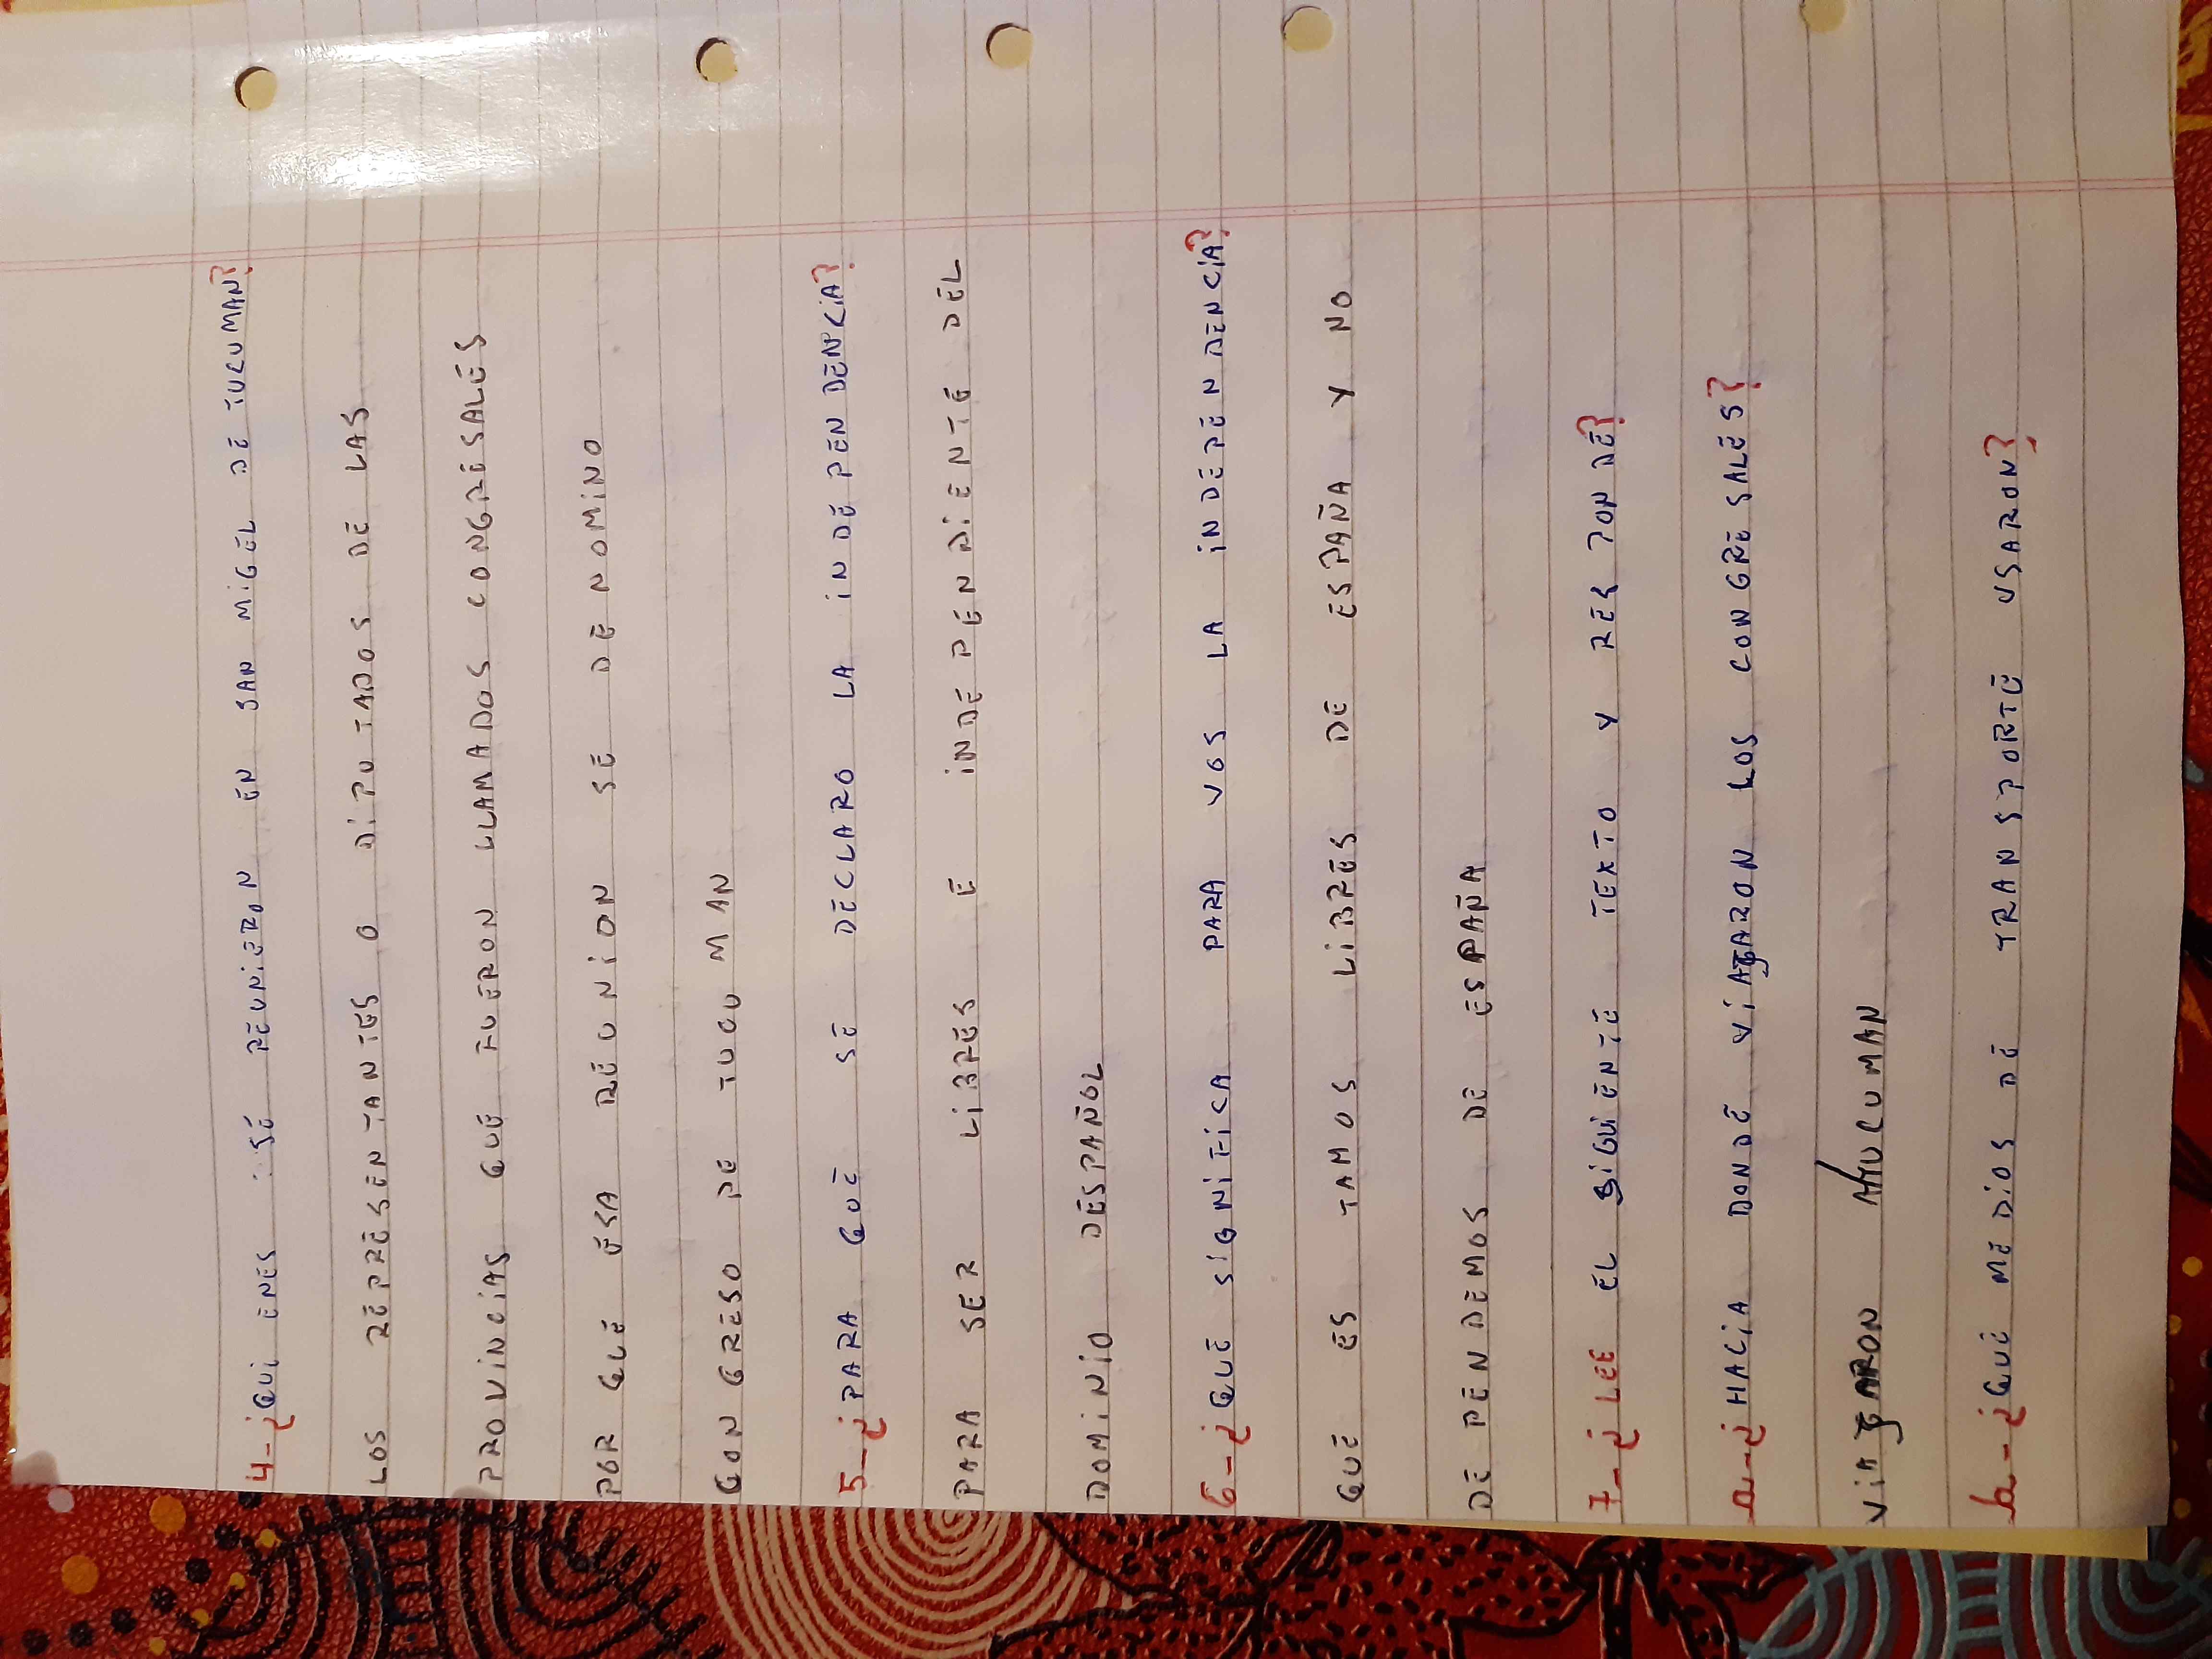 4-¿QUIENES SE REUNIERON EN SAN MIGEL DE TUCUMAN?
LOS REPRESENTANTES O DIPUTADOS DE LAS
PROVINCIAS QUE FUERON LLAMADOS CONGRESALES
POR QUE ESA REUNION SE DENOMINO
CONGRESO DE TUCUMAN
5-¿PARA QUE SE DECLARO LA INDEPENDENCIA?
PARA SER LIBRES E INDEPENDIENTE DEL
DOMINIO DESPAÑOL
6-¿QUE SIGNIFICA PARA VOS LA INDEPENDENCIA?
QUE ESTAMOS LIBRES DE ESPAÑA Y NO
DE PENDEMOS DE ESPAÑA
7-¿LEE EL SIGUIENTE TEXTO Y RESPONDE?
a-¿HACIA DONDE VIAJARON LOS CONGRESALES?
VIAJARON ATUCUMAN
b-¿QUE MEDIOS DE TRANSPORTE USARON?